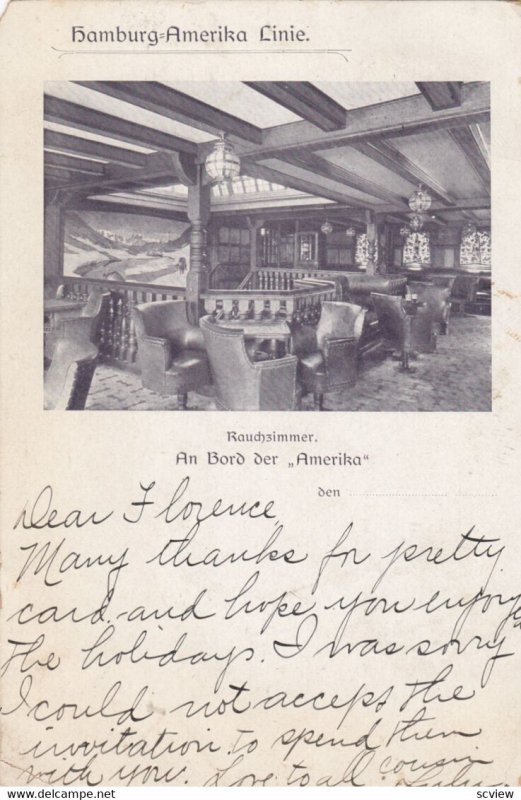 Hamburg-Amerika Linie.
Rauchzimmer.
An Bord der „Amerika“
den
Dear Florence
Many thanks for pretty
card and hope you enjoyed
the holidays. I was sorry
I could not accept the
invitation to spend them
with you. Love to all cousin
Lulu
https://www.delcampe.net
SCVIEW